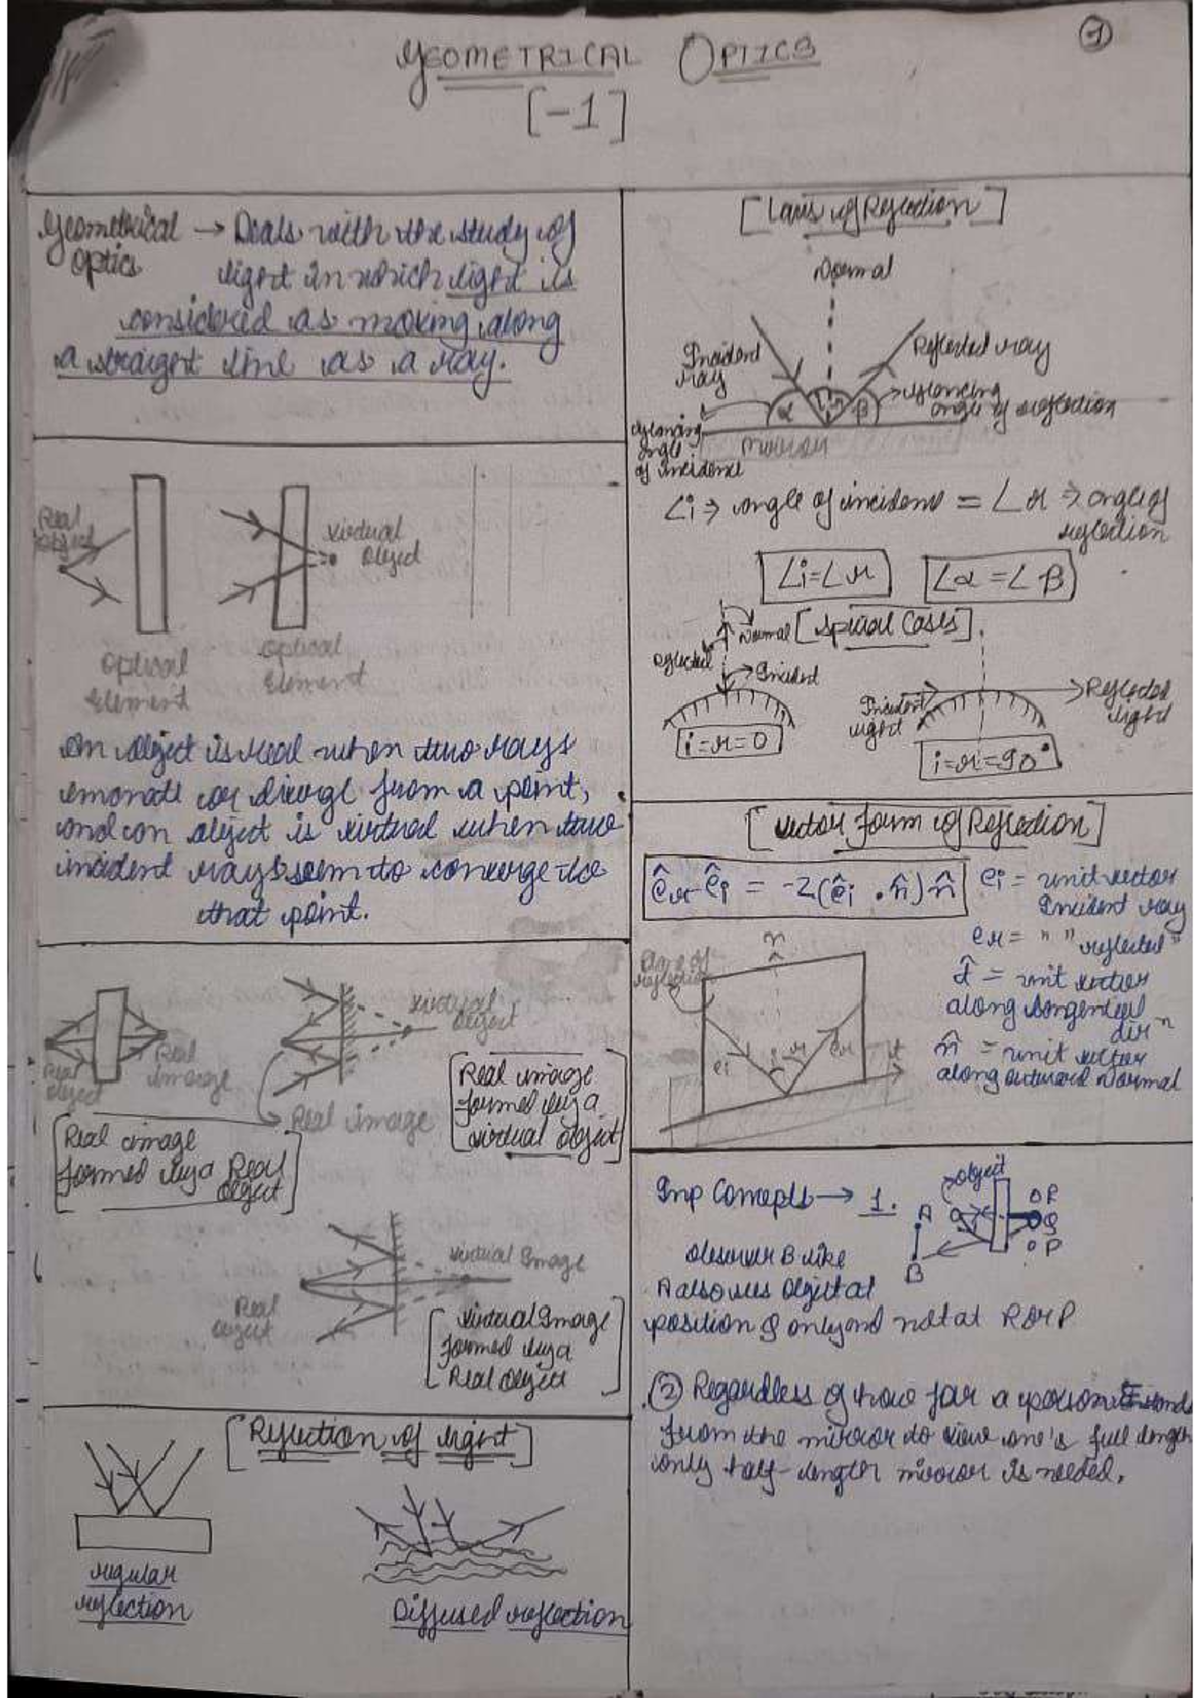 1
GEOMETRICAL OPTICS
[-1]
Geometrical → Deals with the study of
optics light in which light is
considered as moving along
a straight line as a ray.
Real
object
virtual
object
optical
Element
optical
Element
An object is real when two rays
emanate or diverge from a point,
and an object is virtual when two
incident rays seem to converge to
that point.
Real
object
Real
image
virtual
object
Real image
[Real image
formed by a Real
object]
[Real image
formed by a
virtual object]
Real
object
virtual Image
[virtual Image
formed by a
Real object]
[Reflection of light]
regular
reflection
Diffused reflection
[Laws of Reflection]
Normal
Incident
ray
Reflected ray
α i r β
glancing
angle of reflection
glancing
angle
of incidence
mirror
∠i ⇒ angle of incidence = ∠r ⇒ angle of
reflection
∠i=∠r ∠α=∠β
[Special Cases]
Normal
reflected
Incident
i=r=0
Incident
light
Reflected
light
i=r=90°
[vector form of Reflection]
êr-êi = -2(êi . n̂)n̂
ei = unit vector
Incident ray
er = " " reflected "
t̂ = unit vector
along tangential
dirn
n̂ = unit vector
along outward Normal
Plane of
reflection
n
ei
i r
er
t
Imp Concepts → 1.
object
A
B
R
Q
P
Observer B like
A also sees object at
position Q only and not at R or P
(2) Regardless of how far a person stands
from the mirror to view one's full length
only half-length mirror is needed.